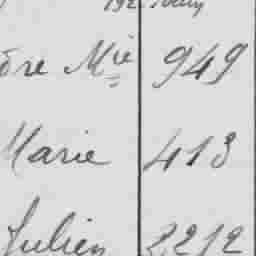 dre Mie 949
Marie 413
Julien 2212